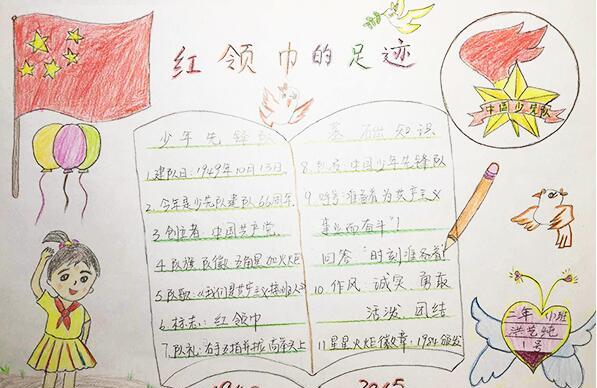 红领巾的足迹
中国少先队
少年先锋队
基础知识
1.建队日:1949年10月13日
2.今年是少先队建队66周年
3.创立者:中国共产党
4.队旗队徽:五角星加火炬
5.队歌:《我们是共产主义接班人》
6.标志:红领巾
7.队礼:右手五指并拢高举头上
8.队名:中国少年先锋队
9.呼号:准备着为共产主义
事业而奋斗"!
回答"时刻准备着"
10.作风:诚实 勇敢
活泼 团结
11.星星火炬徽章:1984颁发
二年(1)班
1号
2015